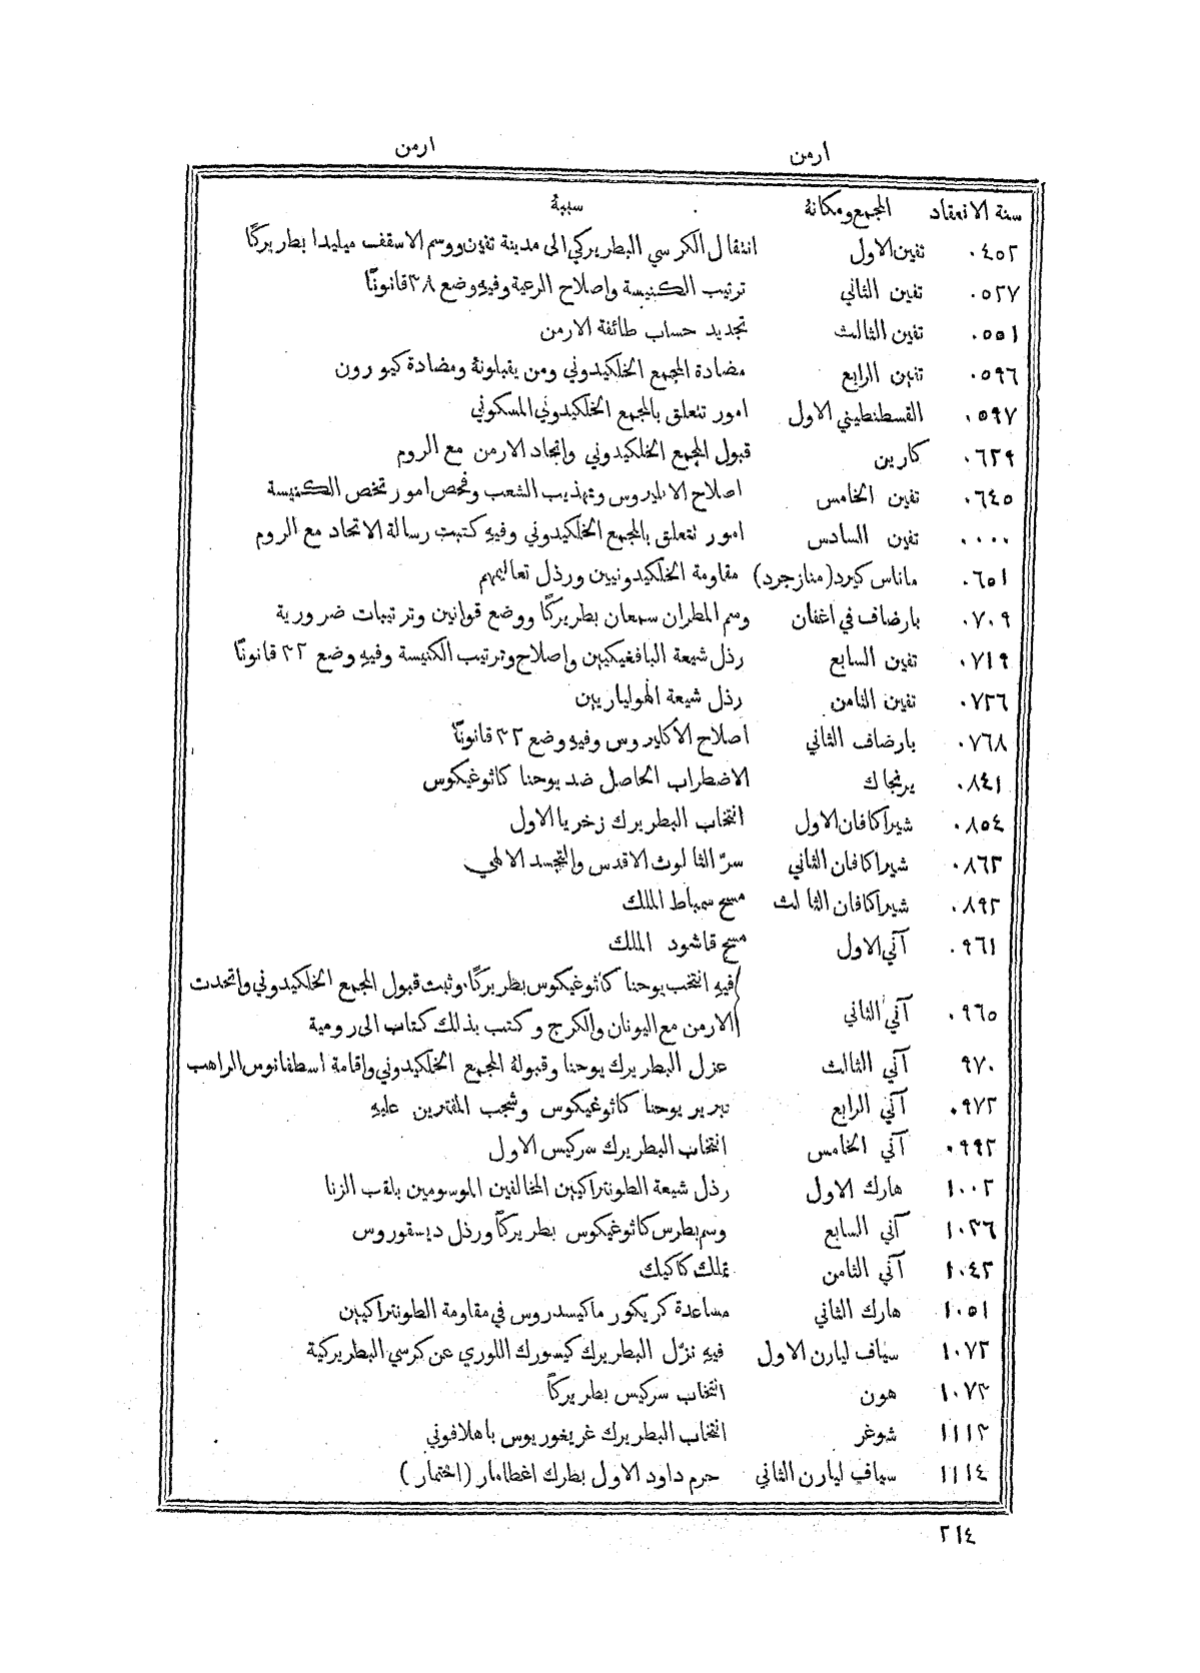 ارمن ارمن
سنة الانعقاد المجمع ومكانهُ سببهُ
٠٤٥٢ تفين الاول انتقال الكرسي البطريركي الى مدينة تفين ووسم الاسقف ميليدا بطريركًا
٠٥٢٧ تفين الثاني ترتيب الكنيسة واصلاح الرعية وفيهِ وضع ٣٨ قانونًا
٠٥٥١ تفين الثالث تجديد حساب طائفة الارمن
٠٥٩٦ تفين الرابع مضادة المجمع الخلكيدوني ومن يقبلونهُ ومضادة كيورون
٠٥٩٧ القسطنطيني الاول امور تتعلق بالمجمع الخلكيدوني المسكوني
٠٦٢٩ كارين قبول المجمع الخلكيدوني واتحاد الارمن مع الروم
٠٦٤٥ تفين الخامس اصلاح الاكليروس وتهذيب الشعب وفحص امور تخص الكنيسة
٠٠٠٠ تفين السادس امور تتعلق بالمجمع الخلكيدوني وفيهِ كتبت رسالة الاتحاد مع الروم
٠٦٥١ ماناس كيرد (منازجرد) مقاومة الخلكيدونيين ورذل تعاليمهم
٠٧٠٩ بارضاف في اغفان وسم المطران سمعان بطريركًا ووضع قوانين وترتيبات ضرورية
٠٧١٩ تفين السابع رذل شيعة البافغيكيين واصلاح وترتيب الكنيسة وفيهِ وضع ٣٢ قانونًا
٠٧٢٦ تفين الثامن رذل شيعة الهولياريين
٠٧٦٨ بارضاف الثاني اصلاح الاكليروس وفيهِ وضع ٢٣ قانونًا
٠٨٤١ يرنجاك الاضطراب الحاصل ضد يوحنا كاثوغيكوس
٠٨٥٤ شيراكافان الاول انتخاب البطريرك زخريا الاول
٠٨٦٢ شيراكافان الثاني سرّ الثالوث الاقدس والتجسد الالهي
٠٨٩٢ شيراكافان الثالث مسح سمباط الملك
٠٩٦١ آني الاول مسح قاشود الملك
٠٩٦٥ آني الثاني فيهِ انتخب يوحنا كاثوغيكوس بطريركًا. وثبت قبول المجمع الخلكيدوني واتحدت
الارمن مع اليونان والكرج وكتب بذلك كتاب الى رومية
٩٧٠ آني الثالث عزل البطريرك يوحنا وقبولهُ المجمع الخلكيدوني واقامة اسطفانوس الراهب
٠٩٧٢ آني الرابع تبرير يوحنا كاثوغيكوس وشجب المفترين عليهِ
٠٩٩٢ آني الخامس انتخاب البطريرك سركيس الاول
١٠٠٢ هارك الاول رذل شيعة الطونتراكيين المخالفين الموسومين بلقب الزنا
١٠٣٦ آني السابع وسم بطرس كاثوغيكوس بطريركًا ورذل ديسقوروس
١٠٤٢ آني الثامن تملك كاكيك
١٠٥١ هارك الثاني مساعدة كريكور ماكيسدروس في مقاومة الطونتراكيين
١٠٧٢ سياف ليارن الاول فيهِ نزّل البطريرك كيسورك اللوري عن كرسي البطريركية
١٠٧٣ هون انتخاب سركيس بطريركًا
١١١٣ شوغر انتخاب البطريرك غريغوريوس باهلافوني
١١١٤ سياف ليارن الثاني حرم داود الاول بطرك اغطامار (اختمار)
٢١٤